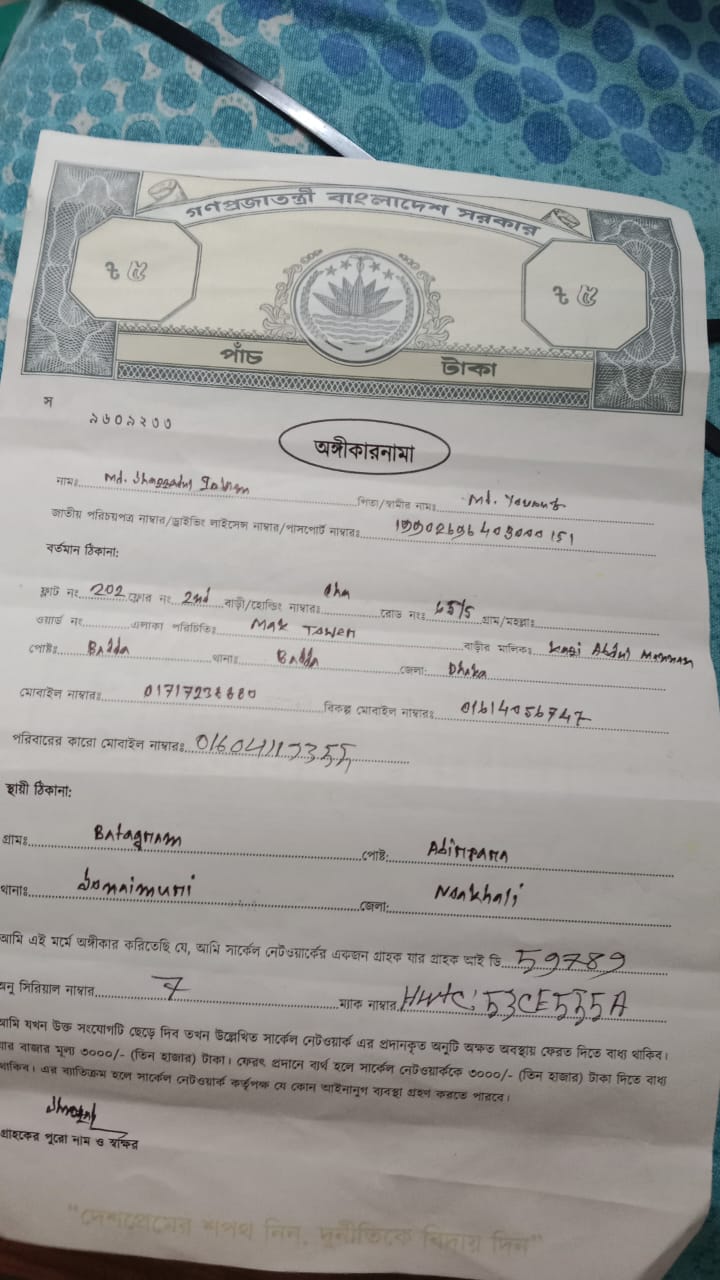 গণপ্রজাতন্ত্রী বাংলাদেশ সরকার
৳ ৫ ৳ ৫
পাঁচ টাকা
স
৯৬০৯২৩৩
অঙ্গীকারনামা
নামঃ Md. Islam পিতা/স্বামীর নামঃ Md.
জাতীয় পরিচয়পত্র নাম্বার/ড্রাইভিং লাইসেন্স নাম্বার/পাসপোর্ট নাম্বারঃ
বর্তমান ঠিকানা:
ফ্লাট নং 202 ফ্লোর নং 2nd বাড়ী/হোল্ডিং নাম্বারঃ রোড নংঃ গ্রাম/মহল্লাঃ
ওয়ার্ড নং এলাকা পরিচিতিঃ Mak Tower বাড়ীর মালিকঃ Kazi Abdul Mannan
পোষ্টঃ Badda থানাঃ Badda জেলা: Dhaka
মোবাইল নাম্বারঃ বিকল্প মোবাইল নাম্বারঃ 01614056747
পরিবারের কারো মোবাইল নাম্বারঃ
স্থায়ী ঠিকানা:
গ্রামঃ Batagram পোষ্ট: Abirpara
থানাঃ Sonaimuri জেলা: Noakhali
আমি এই মর্মে অঙ্গীকার করিতেছি যে, আমি সার্কেল নেটওয়ার্কের একজন গ্রাহক যার গ্রাহক আই ডি 59789
অনু সিরিয়াল নাম্বার 7 ম্যাক নাম্বার HWTC 53CE555A
আমি যখন উক্ত সংযোগটি ছেড়ে দিব তখন উল্লেখিত সার্কেল নেটওয়ার্ক এর প্রদানকৃত অনুটি অক্ষত অবস্থায় ফেরত দিতে বাধ্য থাকিব।
যার বাজার মূল্য ৩০০০/- (তিন হাজার) টাকা। ফেরৎ প্রদানে ব্যর্থ হলে সার্কেল নেটওয়ার্ককে ৩০০০/- (তিন হাজার) টাকা দিতে বাধ্য
থাকিব। এর ব্যতিক্রম হলে সার্কেল নেটওয়ার্ক কর্তৃপক্ষ যে কোন আইনানুগ ব্যবস্থা গ্রহণ করতে পারবে।
গ্রাহকের পুরো নাম ও স্বাক্ষর
"দেশপ্রেমের শপথ নিন, দুর্নীতিকে বিদায় দিন"